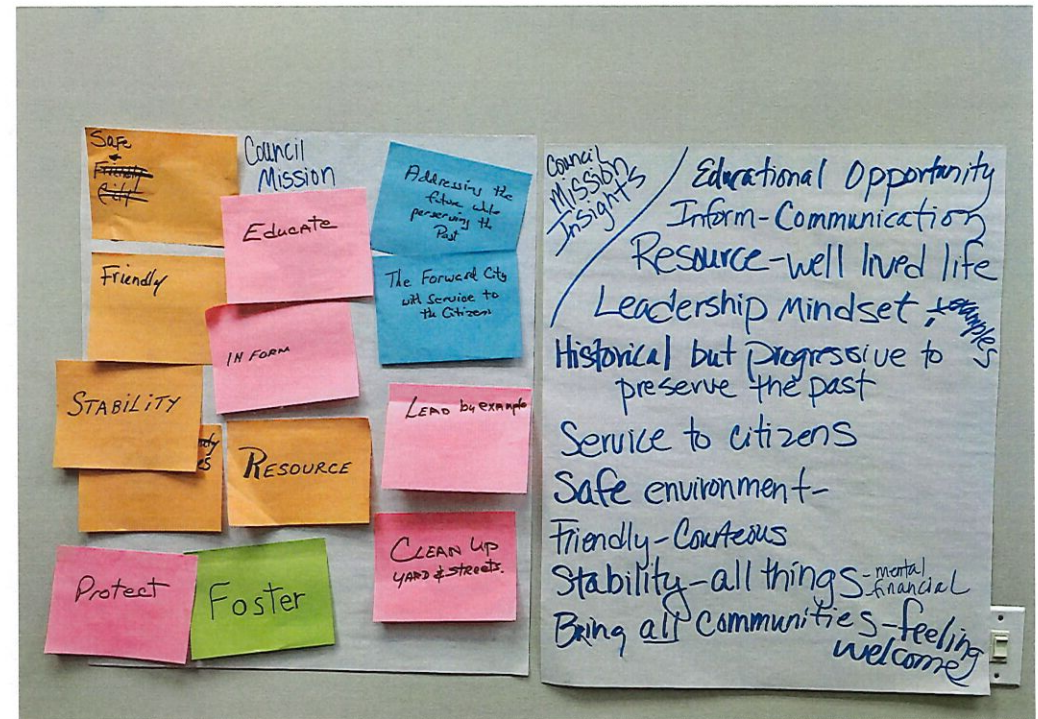 Council
Mission
Safe
+
Friendly
City
Educate
Addressing the
future while
perserving the
Past
Friendly
IN FORM
The Forward City
with Service to
the Citizens
STABILITY
RESOURCE
LEAD by example
Protect
Foster
CLEAN UP
YARD & STREETS.
Council
Mission
Insights
Educational Opportunity
Inform-Communication
Resource-well lived life
Leadership Mindset + examples
Historical but progressive to
preserve the past
Service to citizens
Safe environment-
Friendly-Courteous
Stability-all things-mental
financial
Bring all communities-feeling
welcome